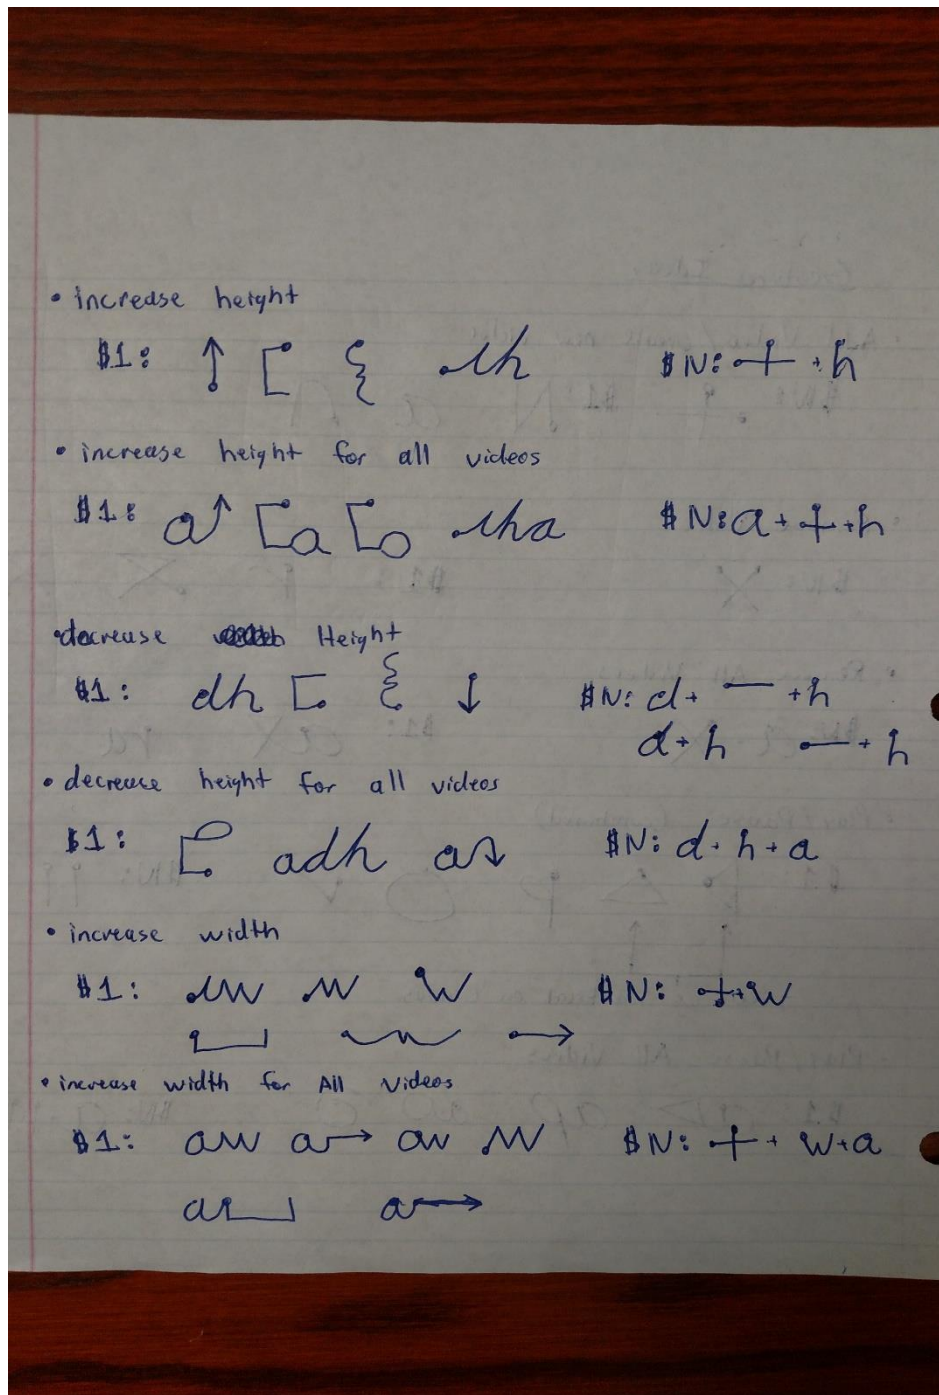 • increase height
$1: ↑ [ { ih $N: + + h
• increase height for all videos
$1: a↑ [a [o iha $N: a + + + h
• decrease Height
$1: dh [ { ↓ $N: d + — + h
d + h — + h
• decrease height for all videos
$1: [ adh a↓ $N: d + h + a
• increase width
$1: iw w $N: + + w
→
• increase width for All Videos
$1: aw a→ $N: + + w + a
a a→